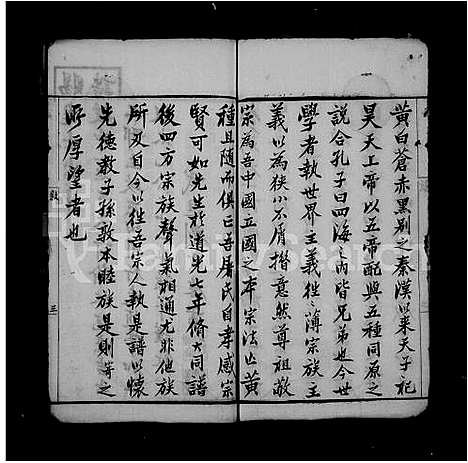 黄白蒼赤黑别之秦漢以来天子祀
昊天上帝以五帝配與五種同原之
説合孔子曰四海之内皆兄弟也今世
學者執世界主義往往薄宗族主
義以為狹小不屑措意然尊祖敬
宗為吾中國立國之本宗法亡黄
種且随而俱亡吾屠氏自孝感宗
賢可如先生於道光七年脩大同譜
後四方宗族聲氣相通尤非他族
所及自今以往吾宗人執是譜以懷
先德教子孫敦本睦族是則寄之
所厚望者也
敦
三
FamilySearch